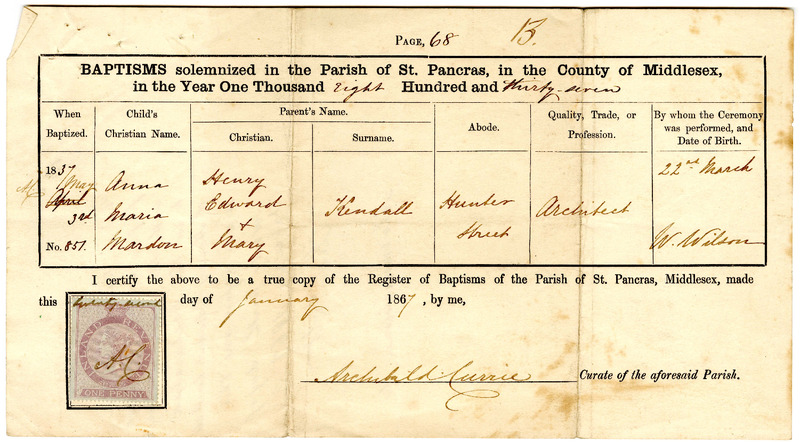 PAGE, 68 B.
BAPTISMS solemnized in the Parish of St. Pancras, in the County of Middlesex,
in the Year One Thousand Eight Hundred and thirty-seven
When Baptized.
Child's Christian Name.
Parent's Name.
Christian.
Surname.
Abode.
Quality, Trade, or Profession.
By whom the Ceremony was performed, and Date of Birth.
1837
May
AC April
3rd
No. 851
Anna
Maria
Mardon
Henry
Edward
+
Mary
Kendall
Hunter
Street
Architect
22nd March
W. Wilson
I certify the above to be a true copy of the Register of Baptisms of the Parish of St. Pancras, Middlesex, made
this day of January 1867, by me,
INLAND REVENUE
A.C.
ONE PENNY
Archibald Currie Curate of the aforesaid Parish.